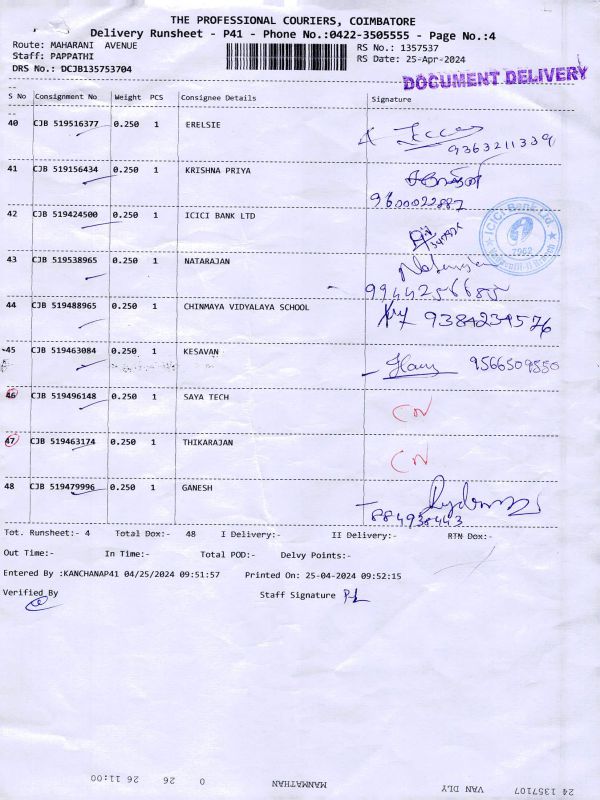 THE PROFESSIONAL COURIERS, COIMBATORE
Delivery Runsheet - P41 - Phone No.:0422-3505555 - Page No.:4
Route: MAHARANI AVENUE RS No.: 1357537
Staff: PAPPATHI RS Date: 25-Apr-2024
DRS No.: DCJB135753704
DOCUMENT DELIVERY
S No Consignment No. Weight PCS Consignee Details Signature
40 CJB 519516377 0.250 1 ERELSIE
9363211339
41 CJB 519156434 0.250 1 KRISHNA PRIYA
9600022887
42 CJB 519424500 0.250 1 ICICI BANK LTD
ICICI Bank Ltd
7962
43 CJB 519538965 0.250 1 NATARAJAN
Natarajan
44 CJB 519488965 0.250 1 CHINMAYA VIDYALAYA SCHOOL
9384234576
45 CJB 519463084 0.250 1 KESAVAN
9566509550
46 CJB 519496148 0.250 1 SAYA TECH
CN
47 CJB 519463174 0.250 1 THIKARAJAN
CN
48 CJB 519479996 0.250 1 GANESH
884938443
Tot. Runsheet:- 4 Total Dox:- 48 I Delivery:- II Delivery:- RTN Dox:-
Out Time:- In Time:- Total POD:- Delvy Points:-
Entered By :KANCHANAP41 04/25/2024 09:51:57 Printed On: 25-04-2024 09:52:15
Verified By Staff Signature
24 1357107 VAN DLY MANMATHAN 0 26 26 11:00